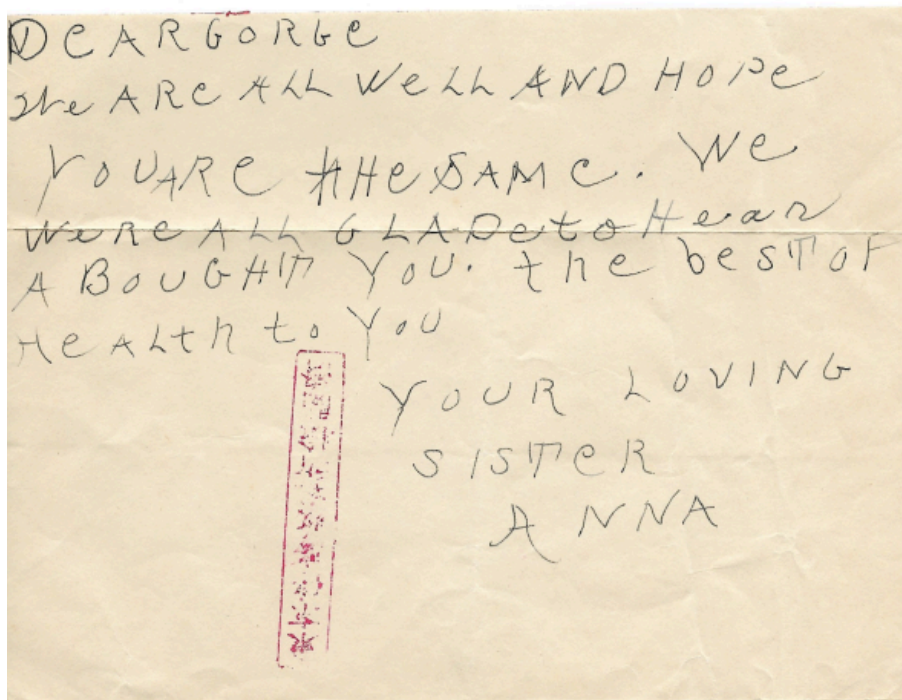 DeARGORGe
We ARe ALL WeLL AND HOPe
YOUARe tHe SAMe. We
WeRe ALL GLADetoHear
A BOUGHT YOU. the besTOF
HeALth to YOU
YOUR LOVING
SISTeR
ANNA